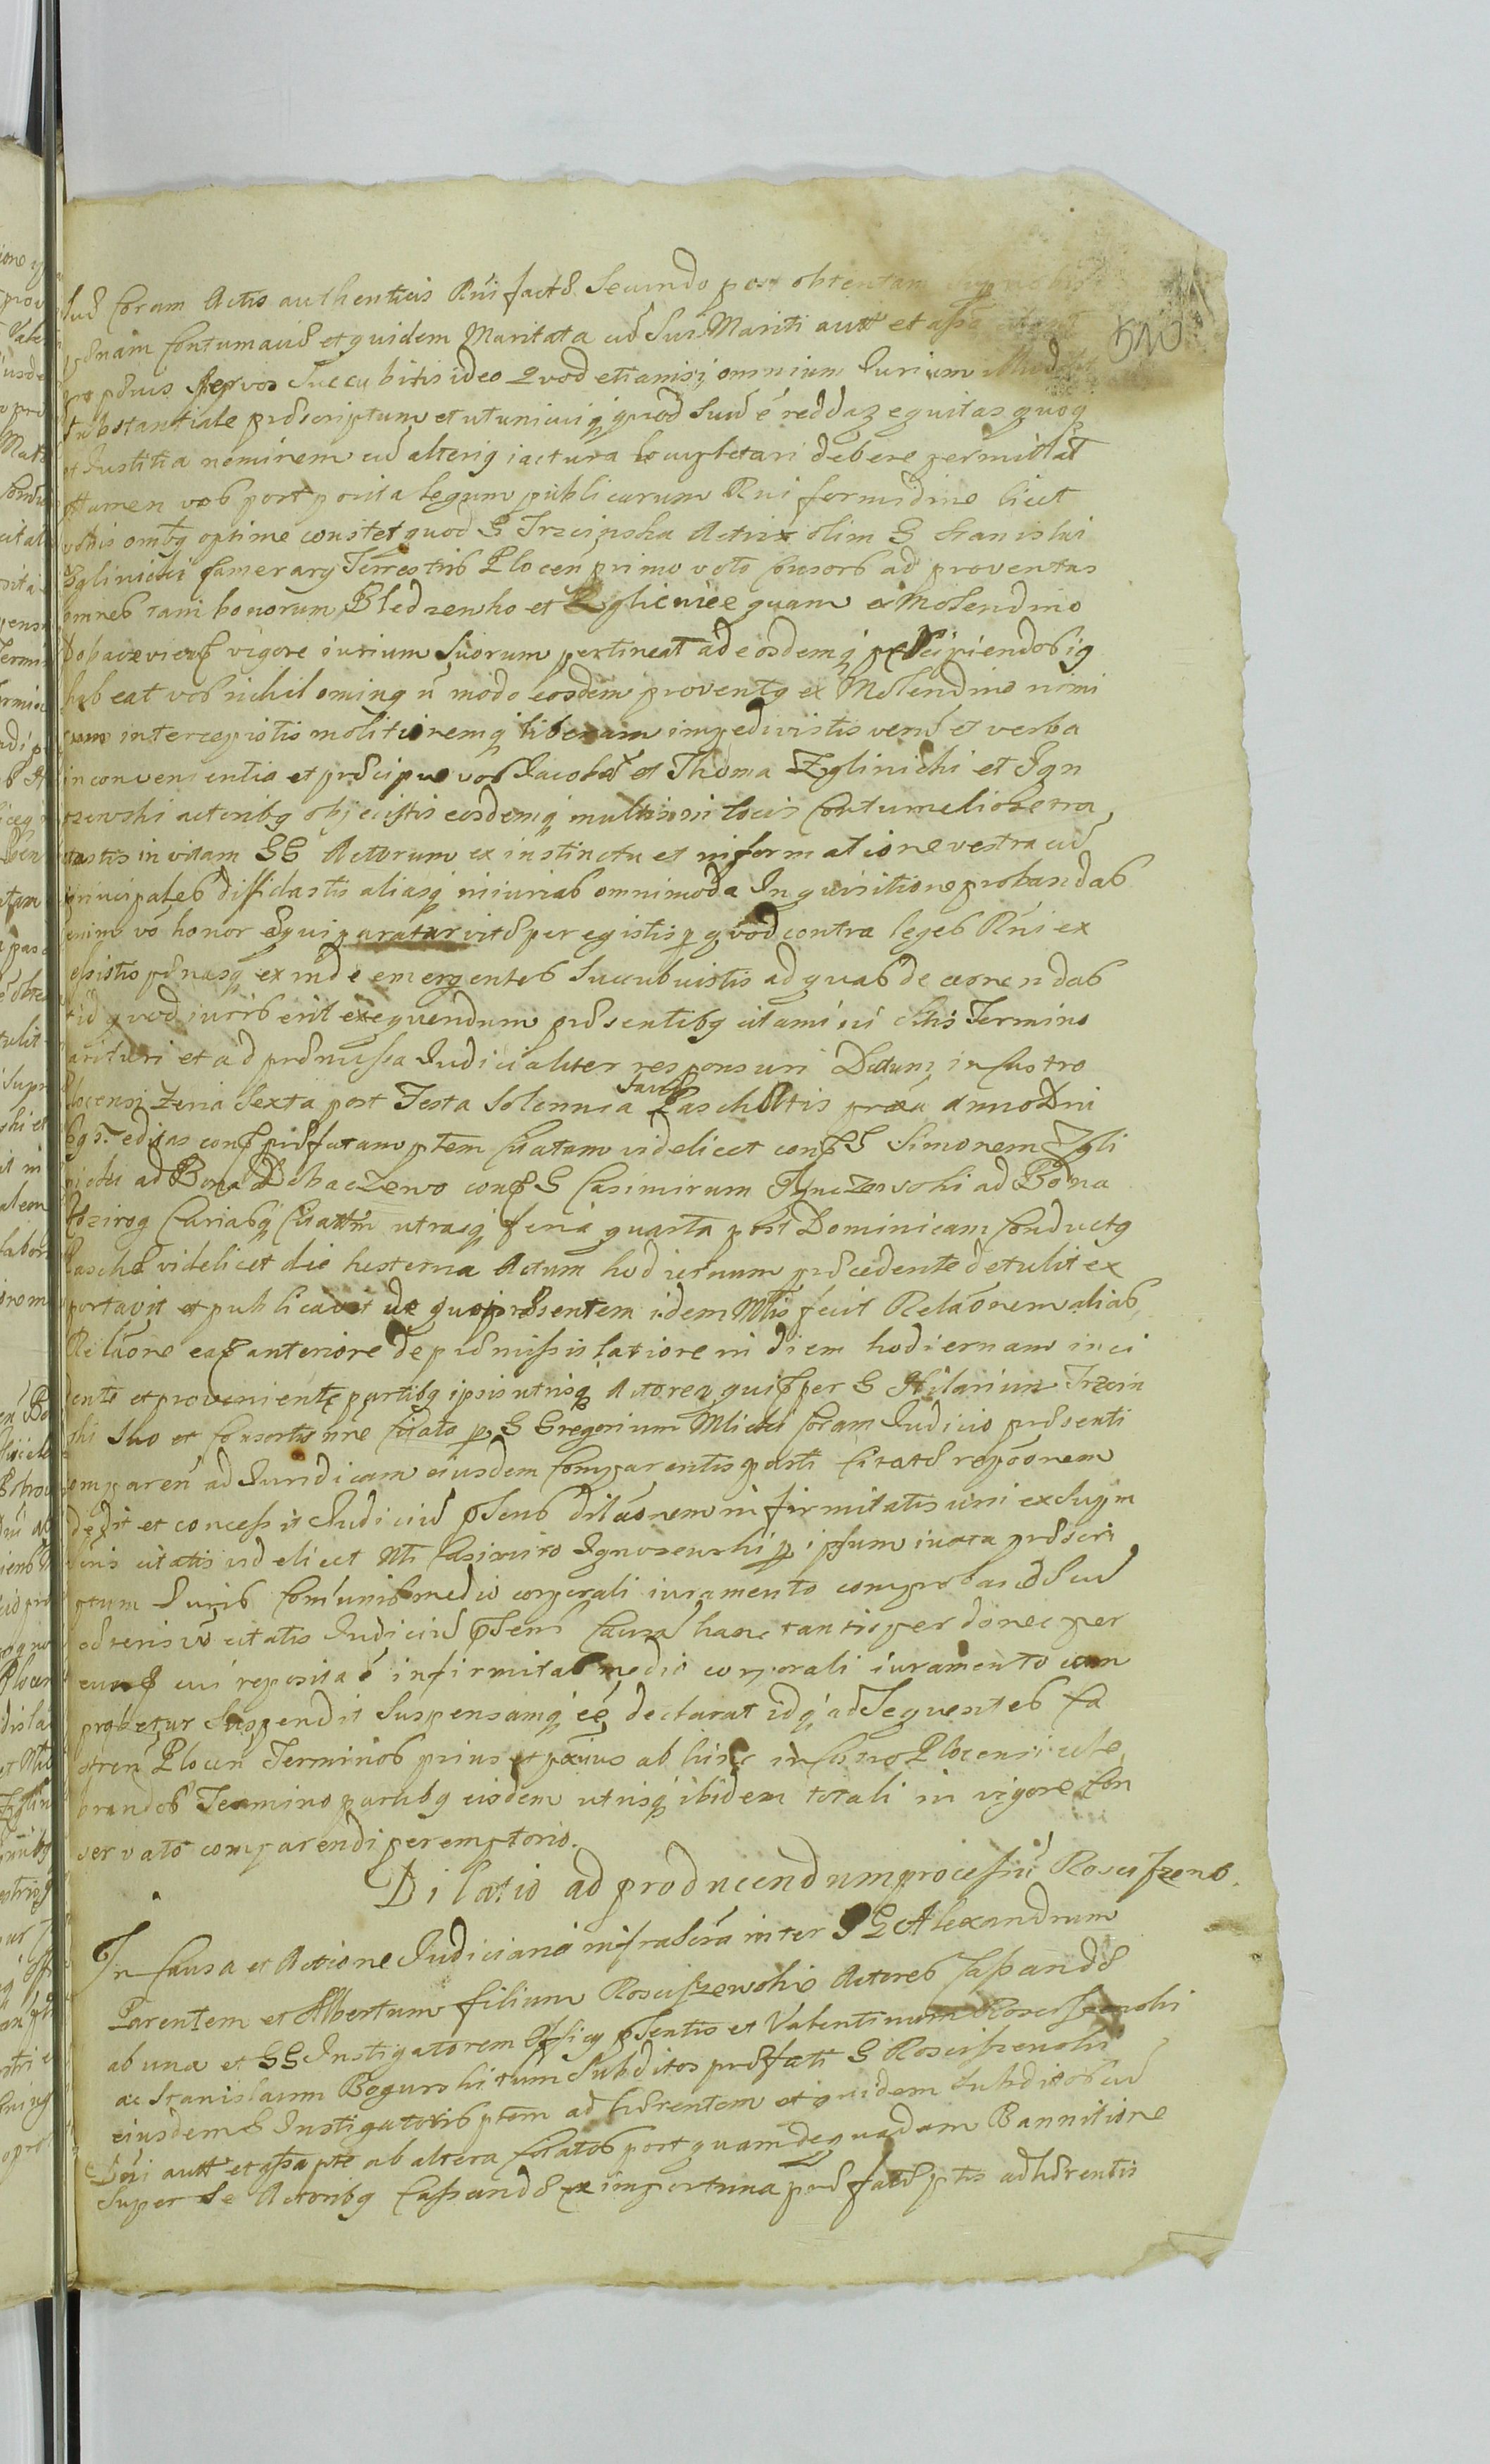 sud Coram Actis authenticis Rñi factæ Secundo post obtentam
pænam Contumaciæ et quidem Maritata cũ Sui Mariti autt et assa
pro pænis per vos Succubitis ideo Quod etiamsi omnium Jurium
Substantiale præscriptum et ut unicuiq quod Suũ é reddaz equitas quoq
et Justitia neminem cũ alterig iactura locupletari debere permittat
Attamen vos post posita legum publicarum Rñi formidine licet
vobis ombg optime constet quod G Trzcinska Actrix olim G Stanislai
Zglinicki Camerary Terrestris Plocen primo voto Consors ad proventus
omnes tam bonorum Bledzewko et Zglenice quam ex Molendino
Dobaczewieñ vigore iurium Suorum pertineat ad eosdemq percipiendos ig
habeat vos nichil oming ñ modo eosdem proventg ex Molendino nimi
rum intercepistis molitioremq liberam impedivistis verũ et verba
inconvenientia et præcipue vos Jacobg et Thoma Zglinicki et Ign
szewski actoribg objecistis eosdemq multis in locis Contumeliose tra
ctastis in vitam GG Actorum ex instinctu et informatione vestra cũ
principales diffidastis aliasq iniurias omnimoda Inquisitione probandas
enim vó honor æquiparatur vitæ peregistis p quod contra leges Rñi ex
cessistis pænasq ex inde emergentes Succubuistis ad quas decernendas
id quod iuris erit exequendum præsentibg citamini citis Termino
parituri et ad præmissa Judicialiter responsuri Datum in Castro
Plocensi Feria Sexta post Festa Solennia Sanctæ Paschatis proxã anno Dni
sg s. editas conse præfatam ptem Citatam videlicet conse G Simonem Zgli
nicki ad Bona Dobaczewo conse G Casimirum Ignaczewski ad Bona
Kozirog Curiasq Citatũ utrasq feria quarta post Dominicam Conductg
Paschæ videlicet die hesterna Actum hodiernum præcedente detulit ex
portavit et publicavit de quo præsentem idem Mlis fecit Relãonem alias
Relãone eaq anteriore de præmissis latiore in diem hodiernam inci
dente et proveniente partibg ipsis utrisq Actorea quip per G Hilarium Trzcin
ski Suo et Consortis nõe Citato p G Gregorium Mlicki Coram Judicio præsenti
comparen ad Juridicam eiusdem Comparentis parti Citatæ repõonem
dedit et concessit Judiciũ pSens dilãonem infirmitatis uni ex Supra
scriis citatis videlicet Mli Casimiro Ignaczewski p ipsum iuxta præscri
ptum Juris Comũnis medio corporali iuramento comprobandæ cũ
cæteris vó citatis Judiciũ pSens Causã hanc tantisper donec per
eund cui reposita é infirmitas medio corporali iuramento com
probetur Suspendit Suspensamq éé declarat idq ad Sequentes Ca
stren Plocen Terminos prius et proxius ab hinc in Castro Plocensi cele
brandos Termino partibg eisdem utrisq ibidem totali in vigore Con
servato comparendi peremptorio.
Dilatio ad producendum processũ Rosciszews.
In Causa et Actione Judiciaria infrascra inter GG Alexandrum
Parentem et Albertum filium Rosciszewskie Actores Cassandæ
ab una et GG Instigatorem Officy pSentis et Valentinum Rosciszewski
ac Stanislaum Bogurski tum Subditos præfati G Rosciszewski
eiusdem G Instigatoris ptem adhærentem et quidem Subditos cũ
Dñi autt et assa pte ab altera Citatos post quam de quadam Bannitione
Super Se Actoribg Cassandæ ex importuna præfatæ ptis adhærentis